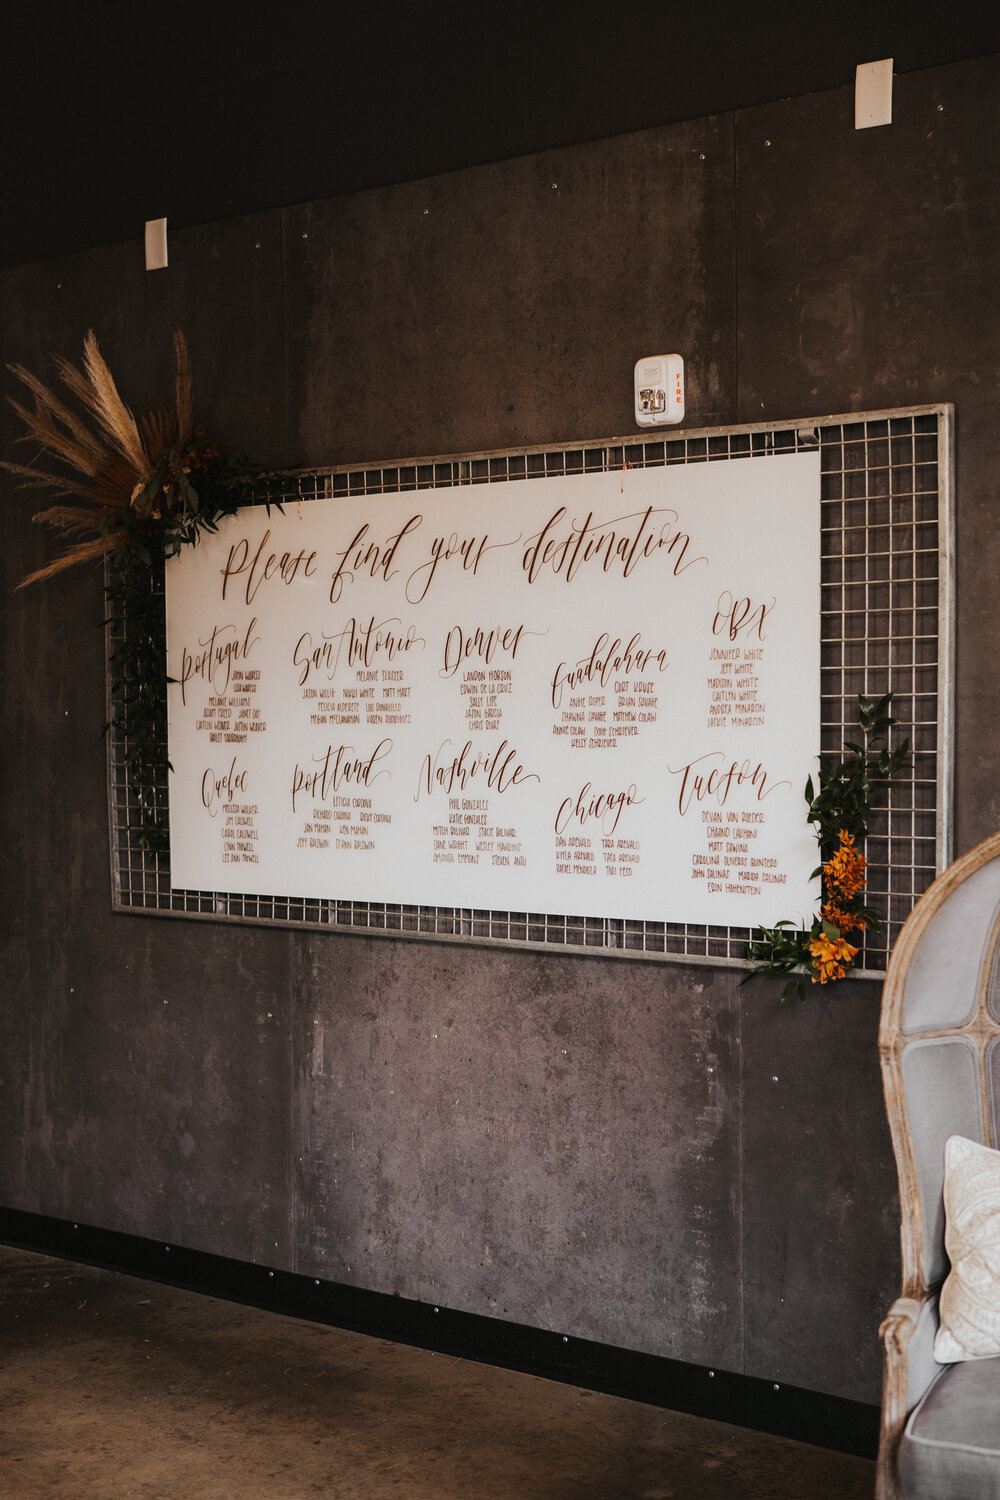 FIRE
Please find your destination
Portugal
JOHN
LISA
MELANIE WILLIAMS
ADAM FREED JANET DAY
CAITLIN WEAVER JUSTIN WEAVER
BAILEY YARBROUGH
San Antonio
MELANIE SLOSSER
JASON WILLIG NIKKI WHITE MATT HART
FELICIA ALDERETE LUIS RONQUILLO
MEGAN MCCLANAHAN KAREN RODRIGUEZ
Denver
LANDON HOBSON
EDWIN DE LA CRUZ
SALLY LIPE
JASON GARCIA
CHRIS RIVAS
Guadalahara
CURT KRUSE
ANGIE ROPER BRIAN SAVAGE
SHAWNA SAVAGE MATTHEW COLAW
ANNIE COLAW DOUG SCHRIEVER
KELLY SCHRIEVER
OBX
JENNIFER WHITE
JEFF WHITE
MADISON WHITE
CAITLYN WHITE
ANDREA MINARCIN
JACKIE MINARCIN
Quebec
MELISSA WALKER
JIM CALDWELL
CAROL CALDWELL
LYNN TIDWELL
LEE ANN TIDWELL
Portland
LETICIA CORDOVA
RICHARD CORDOVA RICKY CORDOVA
JAN MAHAN KEN MAHAN
JEFF BALDWIN D'ANN BALDWIN
Nashville
PHIL GONZALES
KATIE GONZALES
MITCH BOLIVAR STACIE BOLIVAR
DANE WRIGHT WESLEY HAWKINS
AMANDA EMMONS STEVEN ANTU
Chicago
DAN AREVALO TARA AREVALO
KIYLA AREVALO TACO AREVALO
RAFAEL MENDOZA TORI FECO
Tucson
DEVAN VON ROEDER
CHAAND LAKHANI
MATT SAWINA
CAROLINA OLIVEROS QUINTERO
JOHN SALINAS MARIDA SALINAS
ERIN HOHENSTEIN